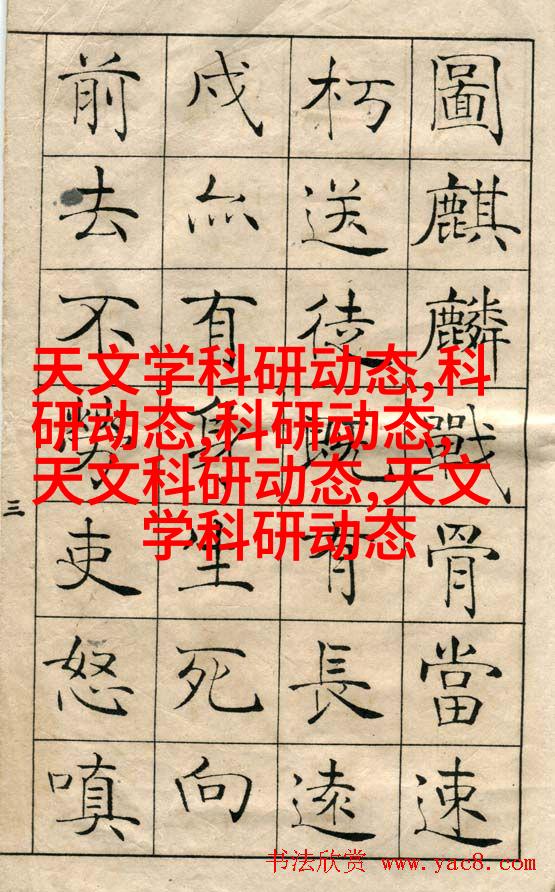 圖麒麟戰骨當速
朽送徒既有長遠
戍亦有身生死向
前去不勞吏怒嗔
三
天文学科研动态,科
研动态,科研动态,
天文科研动态,天文
学科研动态
书法欣赏 www.yac8.com